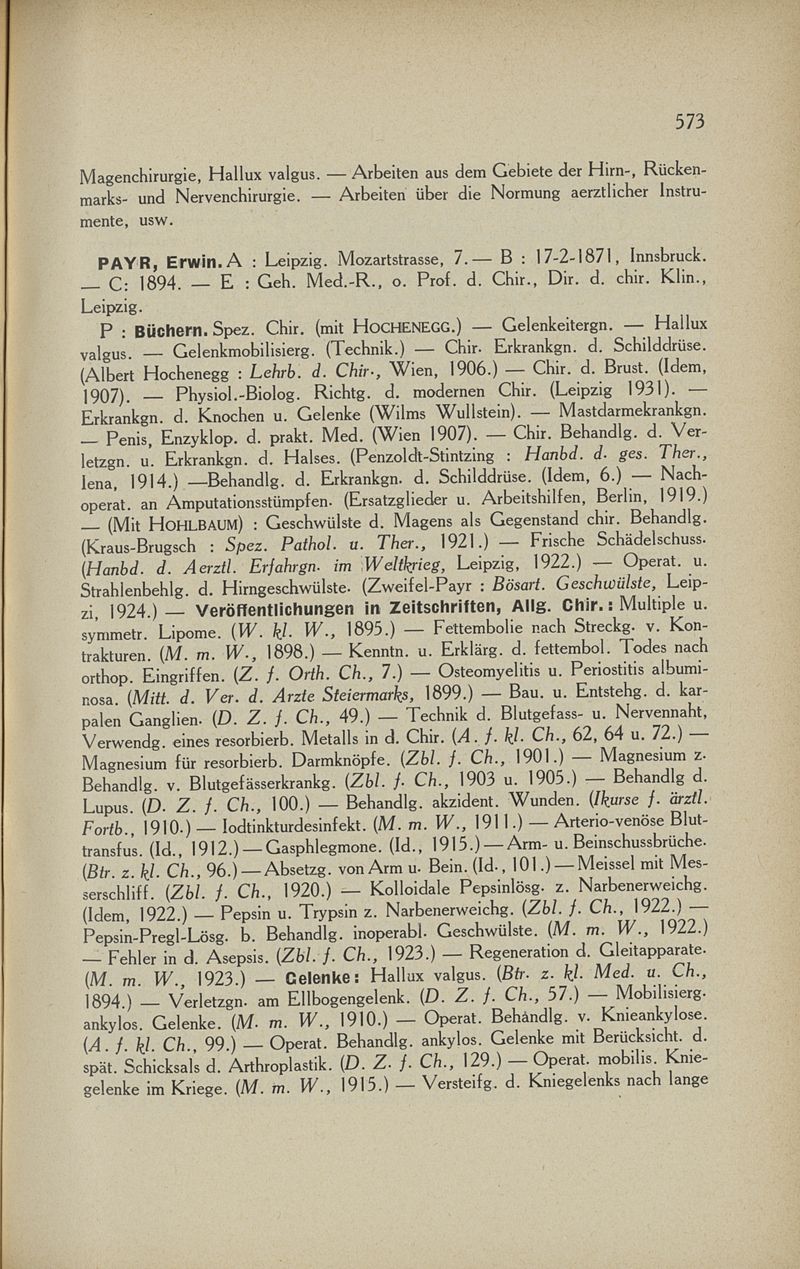 573
Magenchirurgie, Hallux valgus. — Arbeiten aus dem Gebiete der Hirn-, Rücken-
marks- und Nervenchirurgie. — Arbeiten über die Normung aerztlicher Instru-
mente, usw.
PAYR, Erwin. A : Leipzig. Mozartstrasse, 7. — B : 17-2-1871, Innsbruck.
— C: 1894. — E : Geh. Med.-R., o. Prof. d. Chir., Dir. d. chir. Klin.,
Leipzig.
P : Büchern. Spez. Chir. (mit HOCHENEGG.) — Gelenkeitergn. — Hallux
valgus. — Gelenkmobilisierg. (Technik.) — Chir. Erkrankgn. d. Schilddrüse.
(Albert Hochenegg : Lehrb. d. Chir., Wien, 1906.) — Chir. d. Brust. (Idem,
1907). — Physiol.-Biolog. Richtg. d. modernen Chir. (Leipzig 1931). —
Erkrankgn. d. Knochen u. Gelenke (Wilms Wullstein). — Mastdarmekrankgn.
— Penis, Enzyklop. d. prakt. Med. (Wien 1907). — Chir. Behandlg. d. Ver-
letzgn. u. Erkrankgn. d. Halses. (Penzoldt-Stintzing : Hanbd. d. ges. Ther.,
Iena, 1914.) —Behandlg. d. Erkrankgn. d. Schilddrüse. (Idem, 6.) — Nach-
operat. an Amputationsstümpfen. (Ersatzglieder u. Arbeitshilfen, Berlin, 1919.)
— (Mit HOHLBAUM) : Geschwülste d. Magens als Gegenstand chir. Behandlg.
(Kraus-Brugsch : Spez. Pathol. u. Ther., 1921.) — Frische Schädelschuss.
(Hanbd. d. Aerztl. Erfahrgn. im Weltkrieg, Leipzig, 1922.) — Operat. u.
Strahlenbehlg. d. Hirngeschwülste. (Zweifel-Payr : Bösart. Geschwülste, Leip-
zi, 1924.) — Veröffentlichungen in Zeitschriften, Allg. Chir. : Multiple u.
symmetr. Lipome. (W. kl. W., 1895.) — Fettembolie nach Streckg. v. Kon-
trakturen. (M. m. W., 1898.) — Kenntn. u. Erklärg. d. fettembol. Todes nach
orthop. Eingriffen. (Z. f. Orth. Ch., 7.) — Osteomyelitis u. Periostitis albumi-
nosa. (Mitt. d. Ver. d. Arzte Steiermarks, 1899.) — Bau. u. Entstehg. d. kar-
palen Ganglien. (D. Z. f. Ch., 49.) — Technik d. Blutgefass- u. Nervennaht,
Verwendg. eines resorbierb. Metalls in d. Chir. (A. f. kl. Ch., 62, 64 u. 72.) —
Magnesium für resorbierb. Darmknöpfe. (Zbl. f. Ch., 1901.) — Magnesium z.
Behandlg. v. Blutgefässerkrankg. (Zbl. f. Ch., 1903 u. 1905.) — Behandlg d.
Lupus. (D. Z. f. Ch., 100.) — Behandlg. akzident. Wunden. (Ikurse f. ärztl.
Fortb., 1910.) — Iodtinkturdesinfekt. (M. m. W., 1911.) — Arterio-venöse Blut-
transfus. (Id., 1912.) — Gasphlegmone. (Id., 1915.) — Arm- u. Beinschussbrüche.
(Btr. z. kl. Ch., 96.) — Absetzg. von Arm u. Bein. (Id., 101.) — Meissel mit Mes-
serschliff. (Zbl. f. Ch., 1920.) — Kolloidale Pepsinlösg. z. Narbenerweichg.
(Idem, 1922.) — Pepsin u. Trypsin z. Narbenerweichg. (Zbl. f. Ch., 1922.) —
Pepsin-Pregl-Lösg. b. Behandlg. inoperabl. Geschwülste. (M. m. W., 1922.)
— Fehler in d. Asepsis. (Zbl. f. Ch., 1923.) — Regeneration d. Gleitapparate.
(M. m. W., 1923.) — Gelenke : Hallux valgus. (Btr. z. kl. Med. u. Ch.,
1894.) — Verletzgn. am Ellbogengelenk. (D. Z. f. Ch., 57.) — Mobilisierg.
ankylos. Gelenke. (M. m. W., 1910.) — Operat. Behandlg. v. Knieankylose.
(A. f. kl. Ch., 99.) — Operat. Behandlg. ankylos. Gelenke mit Berücksicht. d.
spät. Schicksals d. Arthroplastik. (D. Z. f. Ch., 129.) — Operat. mobilis. Knie-
gelenke im Kriege. (M. m. W., 1915.) — Versteifg. d. Kniegelenks nach lange